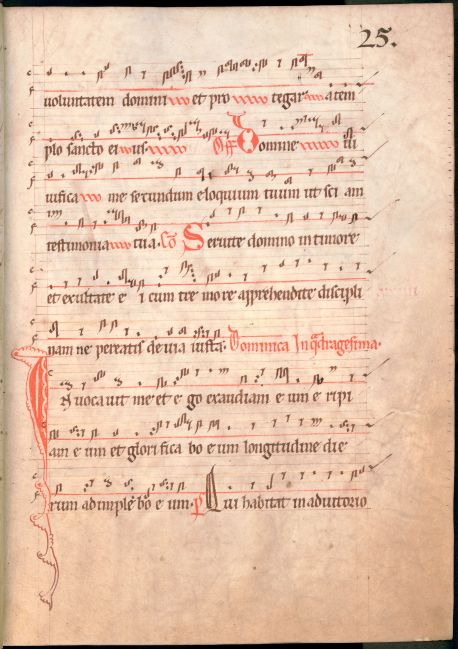 25.
voluntatem domini et pro tegar a tem
plo sancto ei us Off Domine vi
vifica me secundum eloquium tuum ut sci am
testimonia tua. Co Servite domino in timore
et exultate e i cum tre more apprehendite discipli
nam ne pereatis de via iusta. Dominica In qdragesima.
Invocavit me et e go exaudiam e um e ripi
am e um et glori fica bo e um longitudine die
rum adimple bo e um. p Qui habitat in adiutorio